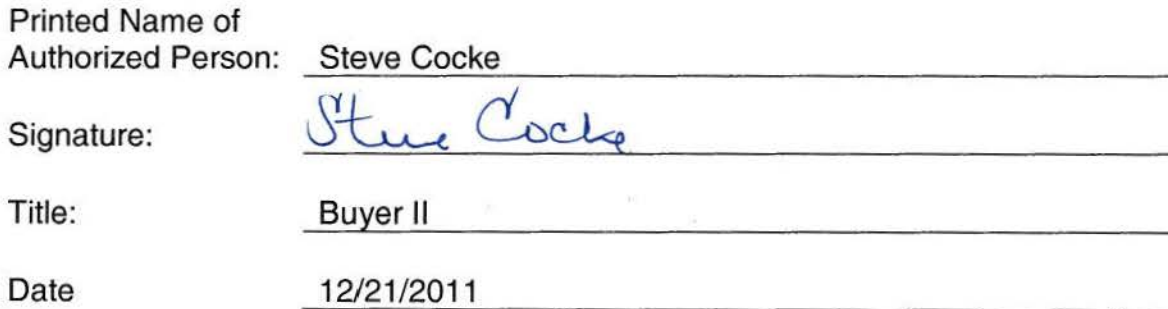 Printed Name of
Authorized Person: Steve Cocke
Signature: Steve Cocke
Title: Buyer II
Date 12/21/2011